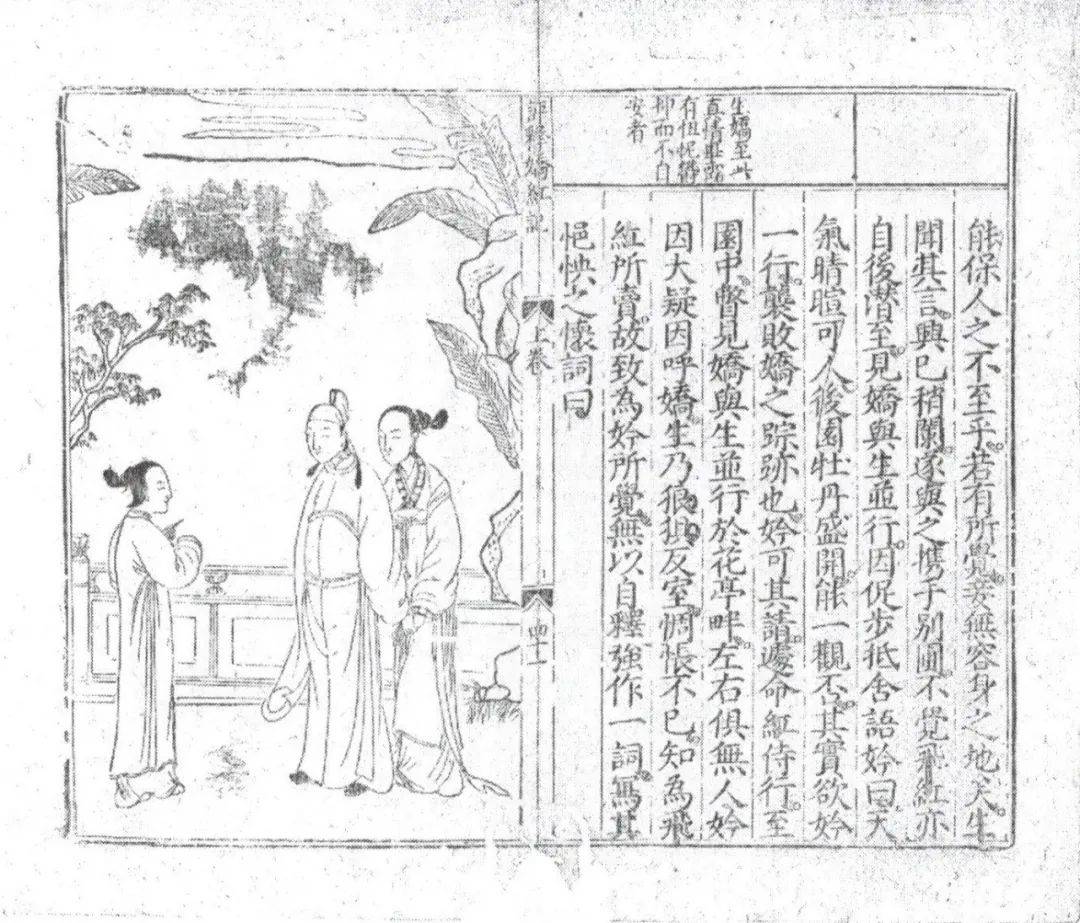 能保人之不至乎若有所覺妾無容身之地矣生
聞其言興已稍闌遂與之携手別圃不覺飛紅亦
自後潛至見嬌與生並行因促步抵舍語妗曰天
氣晴暄可人後園牡丹盛開能一觀否其實欲妗
一行襲敗嬌之踪跡也妗可其請遽命紅侍行至
園中瞥見嬌與生並行於花亭畔左右俱無人妗
因大疑因呼嬌生乃狼狽反室惆悵不已知為飛
紅所賣故致為妗所覺無以自釋強作一詞寫其
悒怏之懷詞曰
生嬌至此
直情
有忸怩
抑而不自
安者
評釋嬌紅記
上卷
四十一